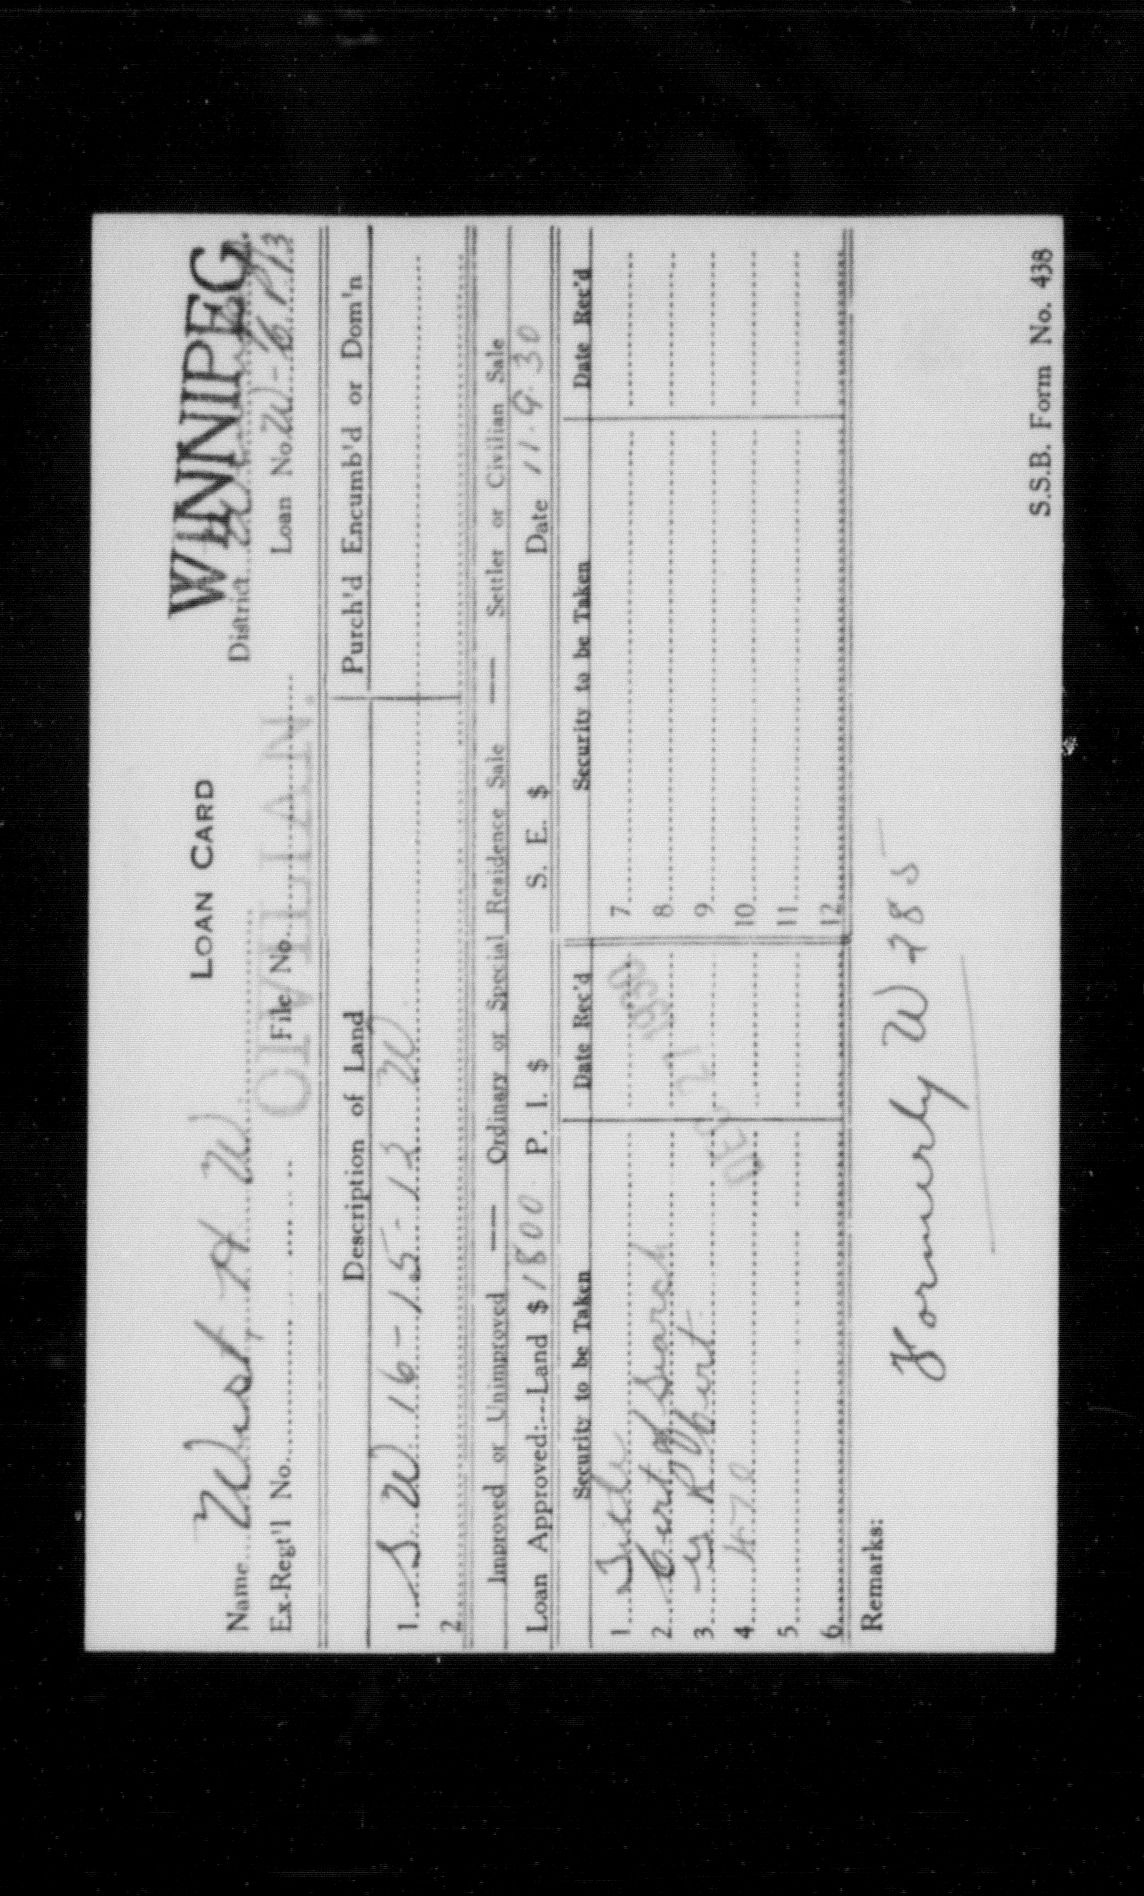 LOAN CARD
WINNIPEG
Name West, H W
District
CIVILIAN.
Ex-Regt'l No. File No. Loan No. W-
Description of Land Purch'd Encumb'd or Dom'n
1. S.W. 16-15-13 W
2.
Improved or Unimproved —— Ordinary or Special Residence Sale —— Settler or Civilian Sale
Loan Approved:---Land $ 1800 P. I. $ S. E. $ Date 11.9.30
Security to be Taken Date Rec'd Security to be Taken Date Rec'd
1. 7.
2. Cert of Search 8.
3. 9.
DEC 21 1930
4. 470 10.
5. 11.
6. 12.
Remarks:
Formerly W 285
S.S.B. Form No. 438